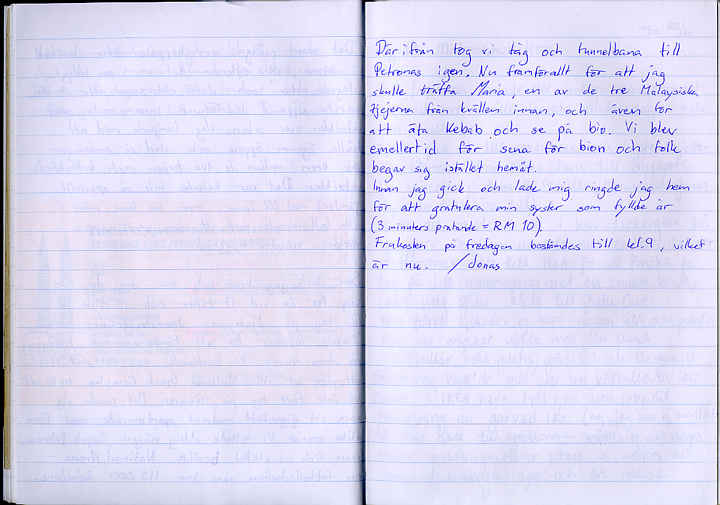 Därifrån tog vi tåg och tunnelbana till
Petronas igen. Nu framförallt för att jag
skulle träffa Maria, en av de tre Malaysiska
tjejerna från kvällen innan, och även för
att äta Kebab och se på bio. Vi blev
emellertid för sena för bion och folk
begav sig istället hemåt.
Innan jag gick och lade mig ringde jag hem
för att gratulera min syster som fyllde år
(3 minuters pratande = RM 10).
Frukosten på fredagen bestämdes till kl. 9, vilket
är nu. /Jonas